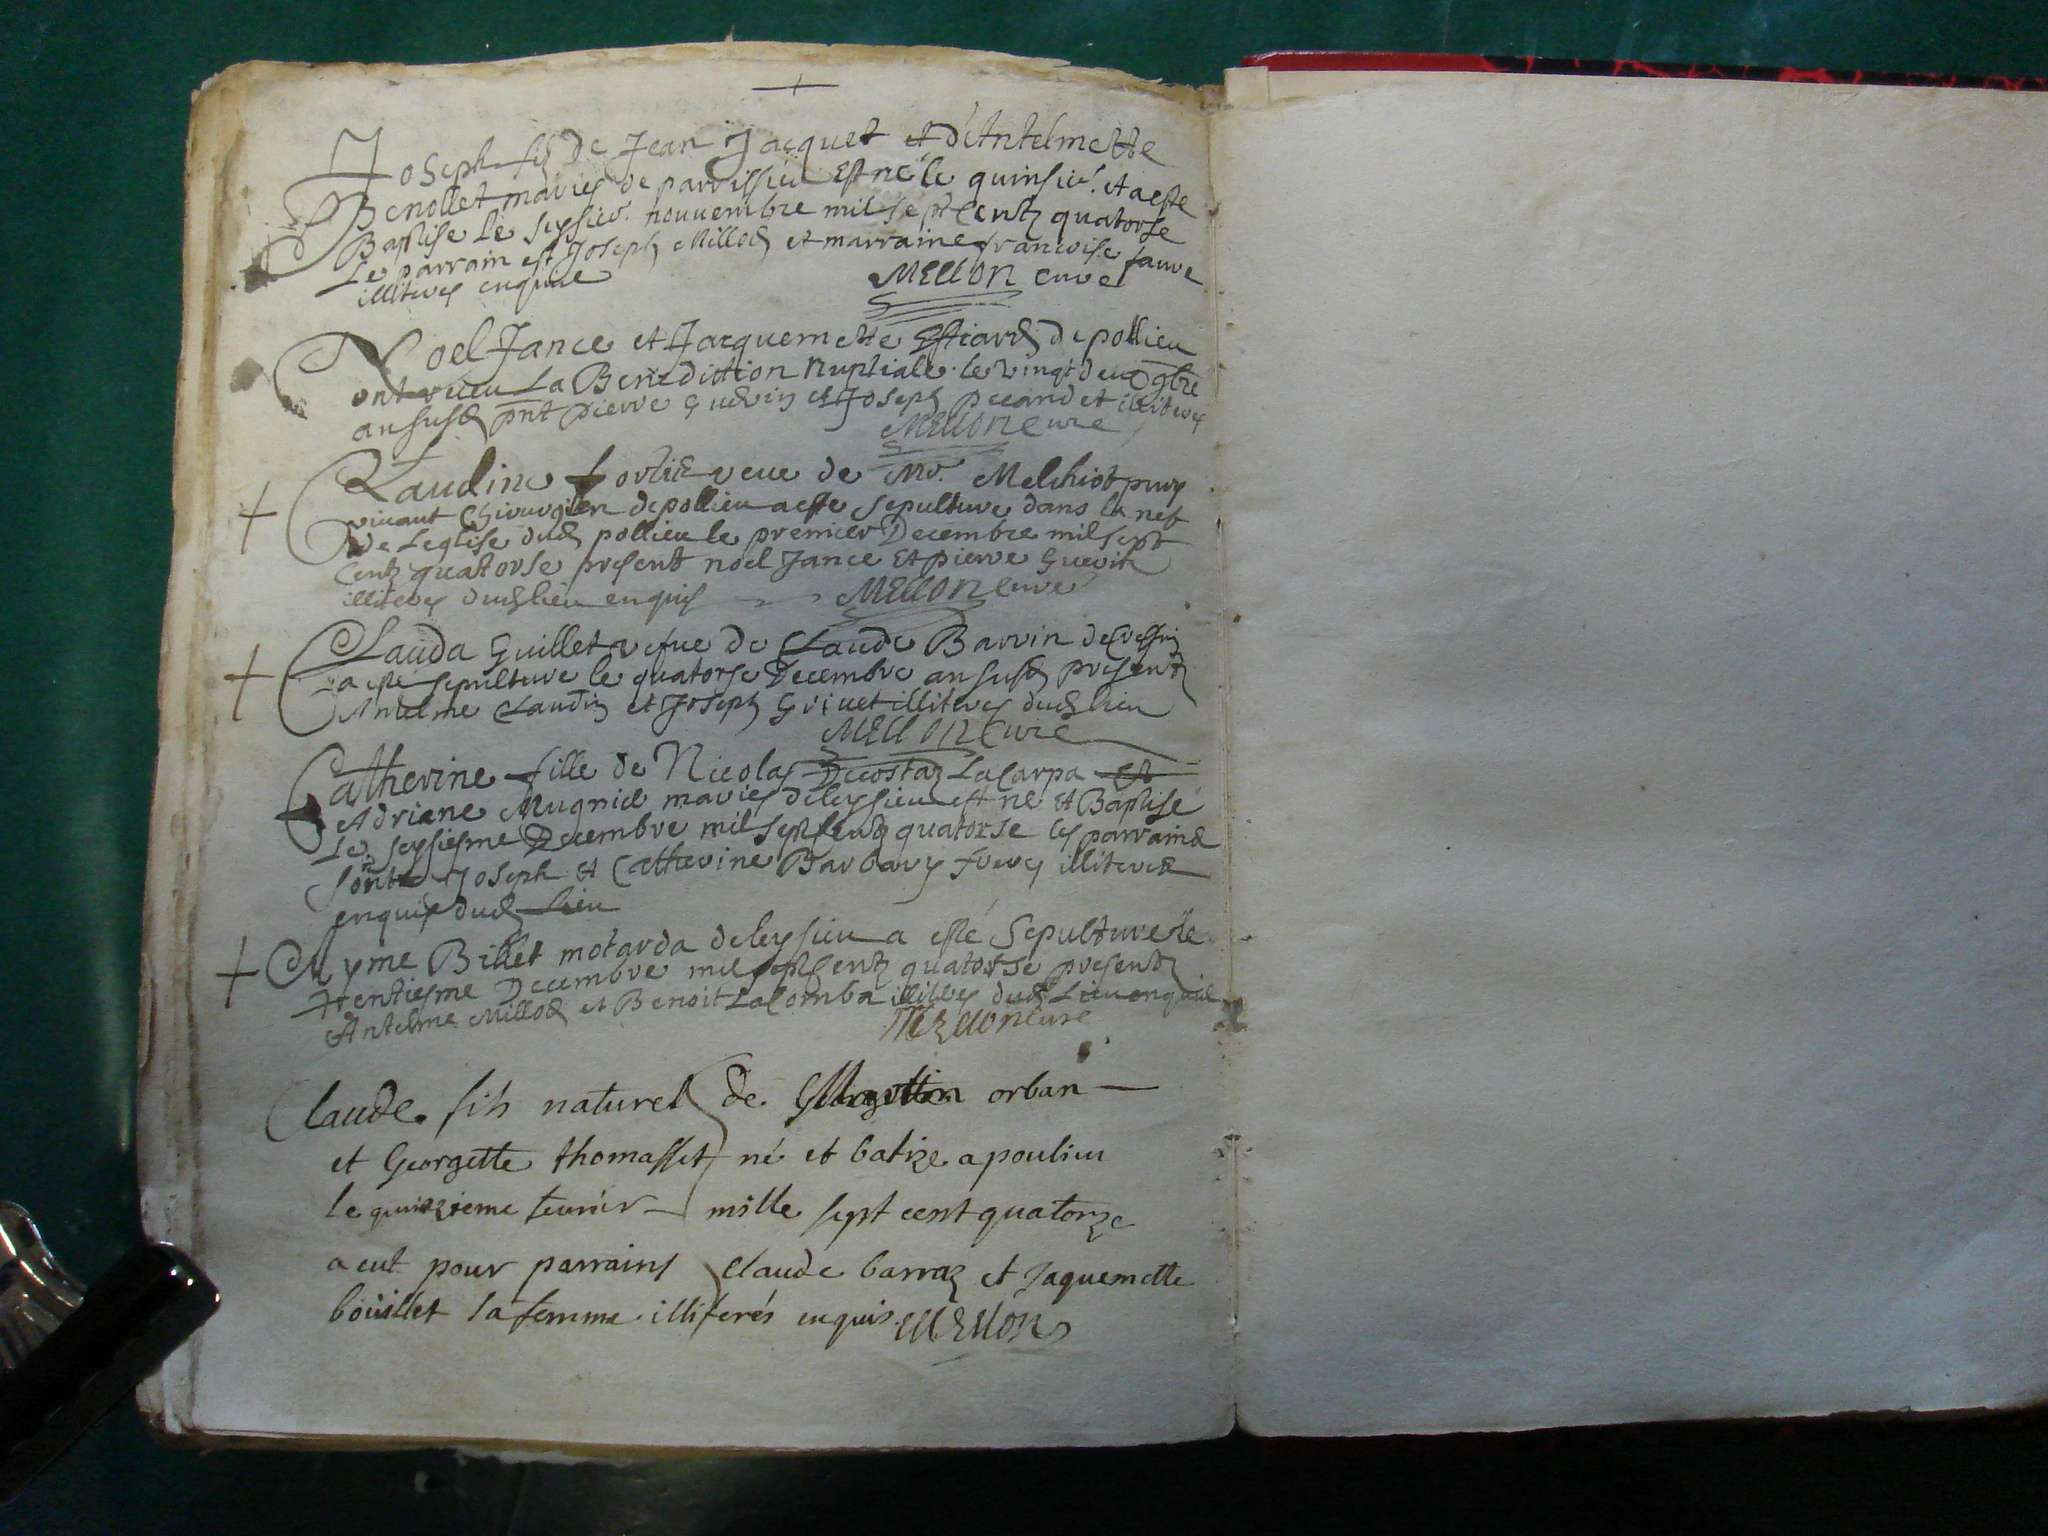 Joseph fis de Jean Jacquet et d'Antelmette
Benollet maries de parvissieu Est né le quinsie. et a este
Baptise le seysie. nouvembre mil sept Centz quatorse
Le parrain est Joseph Millod et marraine francoise fauvre
illiteres enquise MELLON Cure
Noel Jance et Jacquemette Estiard de pollieu
ont receu La Benediction Nuptiale le vingt deux 9bre
an susd pnt pierre Guerin et Joseph illiteres
MELLON Cure
Claudine veue de Mr. Melchiot
vivant Chirurgien de pollieu a este sepulture dans la nef
de Leglise dud pollieu le premier Decembre mil sept
Centz quatorse present noel Jance Et pierre Guerin
illiteres dud lieu enquis MELLON Cure
Clauda Guillet vefue de Claude Barrin de Cressin
a este sepulture le quatorse Decembre an susd presentz
Antelme Claudin et Joseph Grivet illiteres dud lieu
MELLON Cure
Catherine fille de Nicolas Decostaz La Carpa Et
Adriane Mugnie maries de leysieu est ne et Baptise
Le seysiesme Decembre mil sept Centz quatorse les parraine
sont Joseph et Catherine Barbary freres illiteres
enquis dud Lieu
Ayme Billet motarda de leysieu a esté Sepulture le
trentiesme Decembre mil sept Centz quatorse presentz
Antelme Millod et Benoit La Comba dud Lieu enquis
MELLON Cure
Claude fils naturel de orban
et Georgette thomasset né et batize a poulieu
le quinzieme feurier mille sept cent quatorze
a eut pour parrains Claude barraz et Jaquemette
boüillet sa femme illiterés enquis MELLON